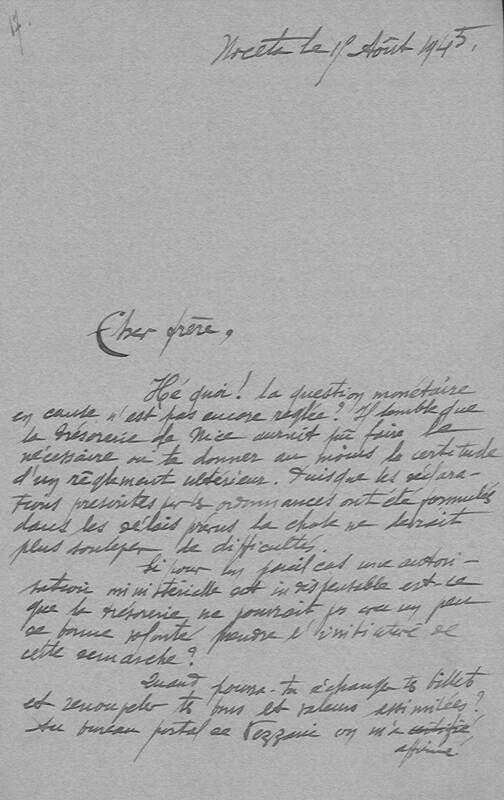 17.
Noceta le 15 Août 1945.
Cher frère,
Hé quoi! la question monétaire
en cause n'est pas encore réglée? Il semble que
la trésorerie de Nice aurait pu faire le
nécessaire ou te donner au moins la certitude
d'un règlement ultérieur. Puisque les déclara-
tions prescrites par les ordonnances ont été formulées
dans les délais prévus la chose ne devrait
plus soulever de difficulté.
Si pour un pareil cas une autori-
sation ministérielle est indispensable est-ce
que la trésorerie ne pourrait pas avec un peu
de bonne volonté prendre l'initiative de
cette démarche?
Quand pourra-tu échanger tes billets
et renouveler tes bons et valeurs assimilées?
Au bureau postal de Vezzani on m'a
affirmé